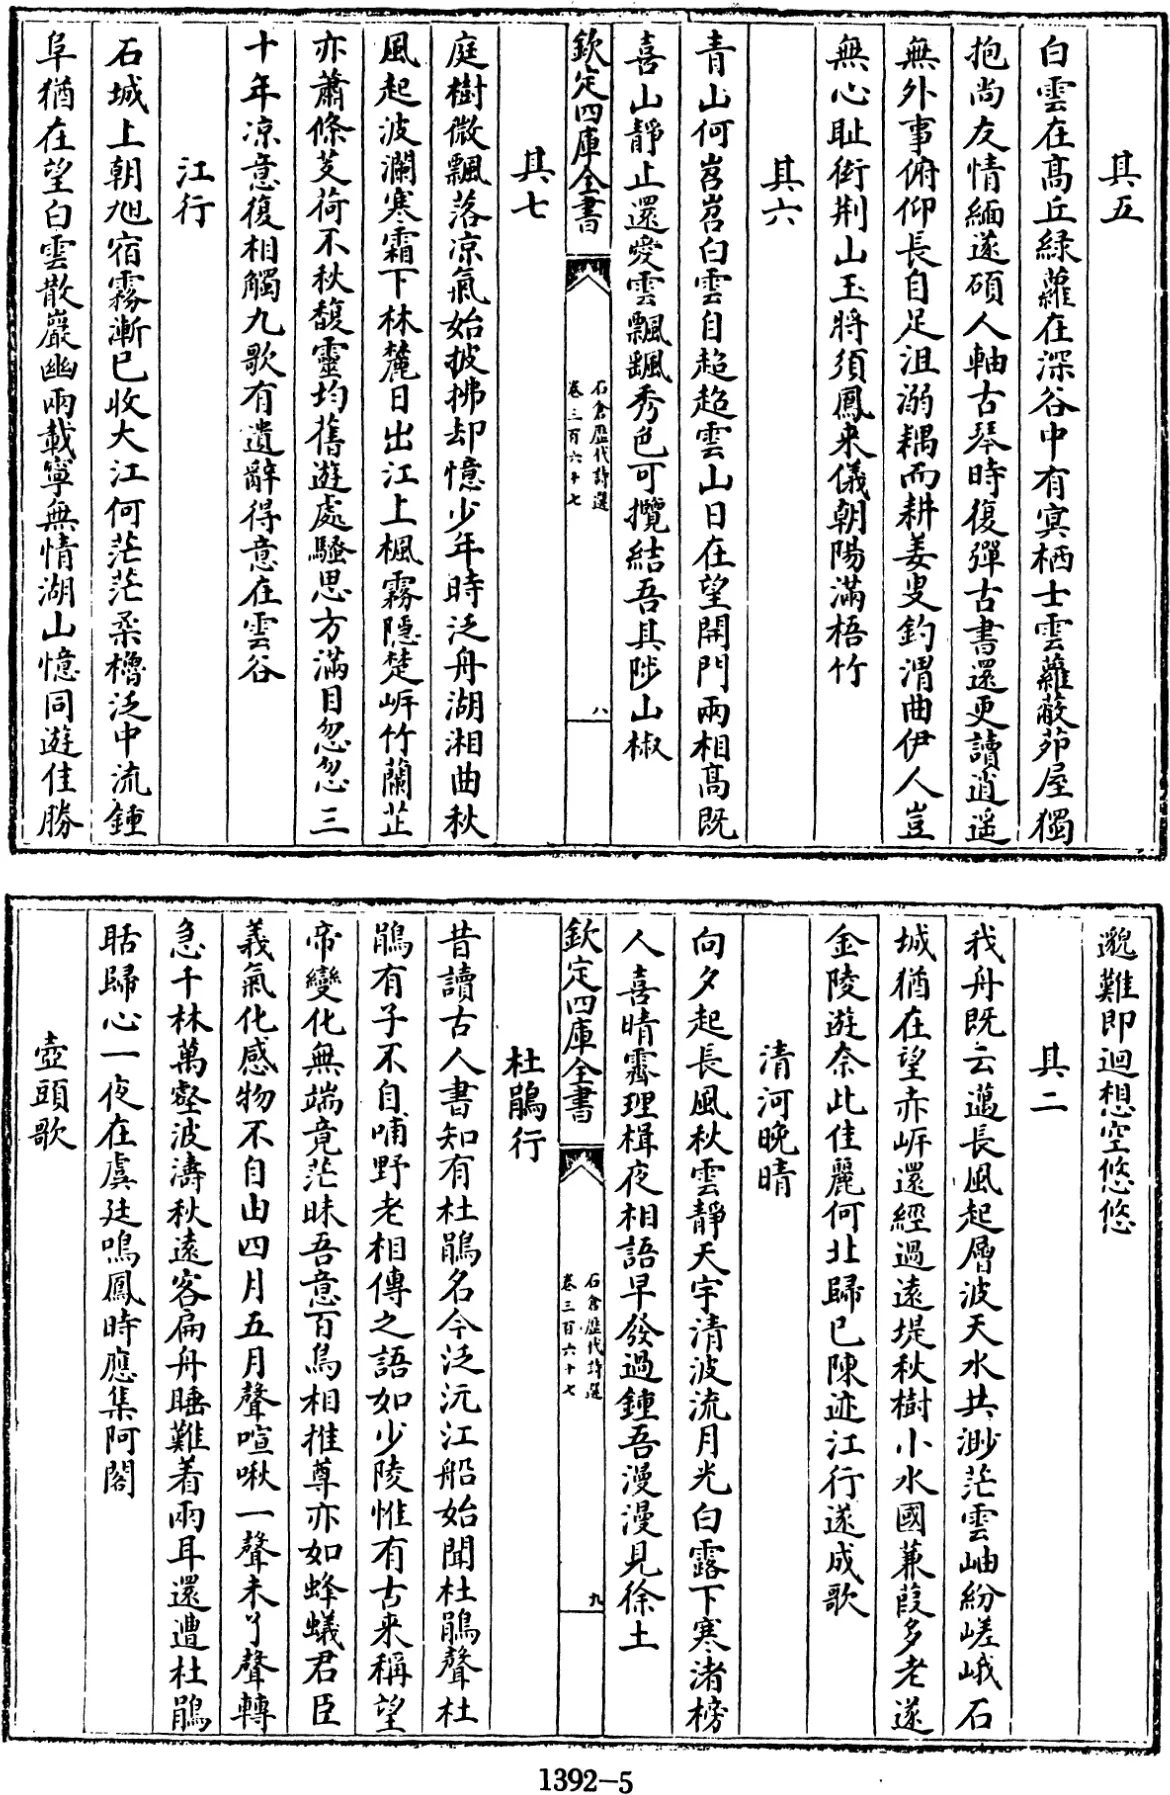 其五
白雲在高丘綠蘿在深谷中有冥栖士雲蘿蔽茆屋獨
抱尚友情緬遂碩人軸古琴時復彈古書還更讀逍遙
無外事俯仰長自足沮溺耦而耕姜叟釣渭曲伊人豈
無心耻衒荆山玉將須鳳来儀朝陽滿梧竹
其六
青山何岧岧白雲自超超雲山日在望開門兩相高既
喜山靜止還愛雲飄飄秀色可攬結吾其陟山椒
欽定四庫全書
石倉歷代詩選
卷三百六十七
八
其七
庭樹微飄落凉氣始披拂却憶少年時泛舟湖湘曲秋
風起波瀾寒霜下林麓日出江上楓霧隱楚岸竹蘭芷
亦蕭條芰荷不秋馥靈均舊遊處騷思方滿目忽忽三
十年凉意復相觸九歌有遺辭得意在雲谷
江行
石城上朝旭宿霧漸已收大江何茫茫柔櫓泛中流鍾
阜猶在望白雲散巖幽兩載寧無情湖山憶同遊佳勝
邈難即迴想空悠悠
其二
我舟既云邁長風起層波天水共渺茫雲岫紛嵯峨石
城猶在望赤岸還經過遠堤秋樹小水國蒹葭多老遂
金陵遊奈此佳麗何北歸已陳迹江行遂成歌
清河晚晴
向夕起長風秋雲靜天宇清波流月光白露下寒渚榜
人喜晴霽理楫夜相語早發過鍾吾漫漫見徐土
欽定四庫全書
石倉歷代詩選
卷三百六十七
九
杜鵑行
昔讀古人書知有杜鵑名今泛沅江船始聞杜鵑聲杜
鵑有子不自哺野老相傳之語如少陵惟有古来稱望
帝變化無端竟茫昧吾意百鳥相推尊亦如蜂蟻君臣
義氣化感物不自由四月五月聲喧啾一聲未了聲轉
急千林萬壑波濤秋遠客扁舟睡難着兩耳還遭杜鵑
聒歸心一夜在虞廷鳴鳳時應集阿閣
壺頭歌
1392-5